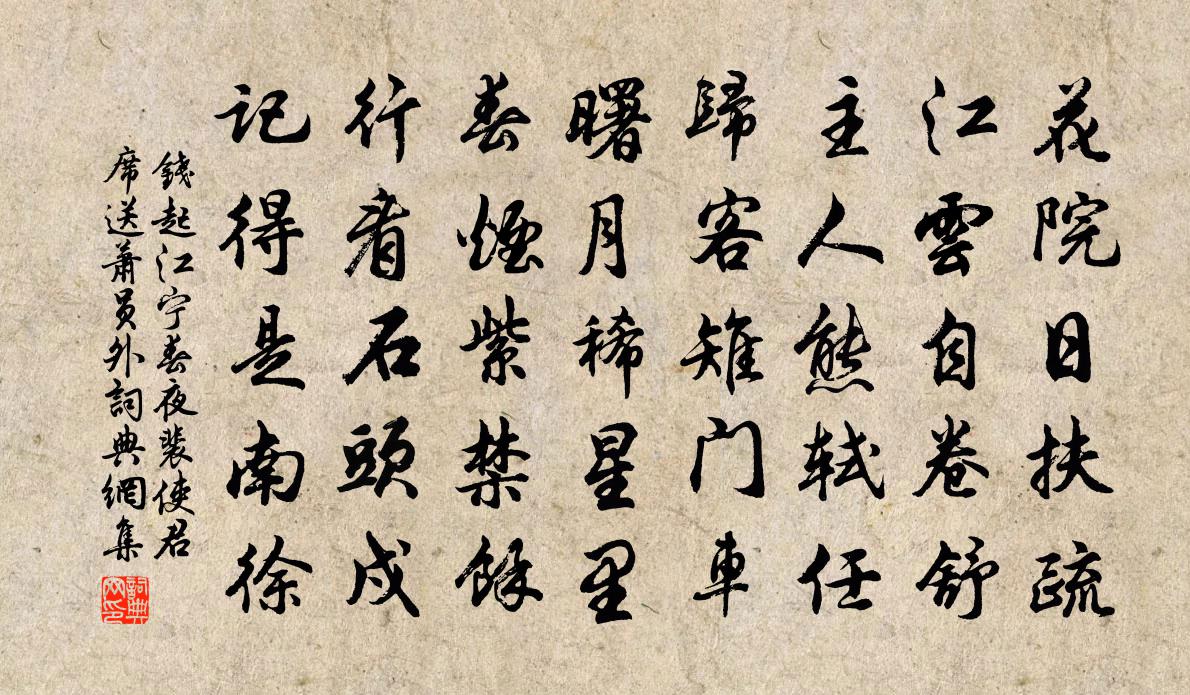 花院日扶疏
江雲自卷舒
主人熊軾任
歸客雉門車
曙月稀星里
春煙紫禁餘
行看石頭戍
記得是南徐
錢起江宁春夜裴使君
席送蕭員外詞典網集
詞典网印